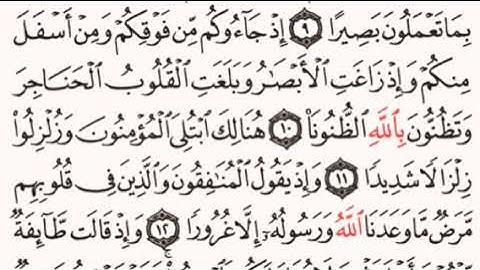 بِمَا تَعْمَلُونَ بَصِيرًا ۝٩ إِذْ جَآءُوكُم مِّن فَوْقِكُمْ وَمِنْ أَسْفَلَ
مِنكُمْ وَإِذْ زَاغَتِ ٱلْأَبْصَٰرُ وَبَلَغَتِ ٱلْقُلُوبُ ٱلْحَنَاجِرَ
وَتَظُنُّونَ بِٱللَّهِ ٱلظُّنُونَا۠ ۝١٠ هُنَالِكَ ٱبْتُلِىَ ٱلْمُؤْمِنُونَ وَزُلْزِلُوا۟
زِلْزَالًا شَدِيدًا ۝١١ وَإِذْ يَقُولُ ٱلْمُنَٰفِقُونَ وَٱلَّذِينَ فِى قُلُوبِهِم
مَّرَضٌ مَّا وَعَدَنَا ٱللَّهُ وَرَسُولُهُۥٓ إِلَّا غُرُورًا ۝١٢ وَإِذْ قَالَت طَّآئِفَةٌ